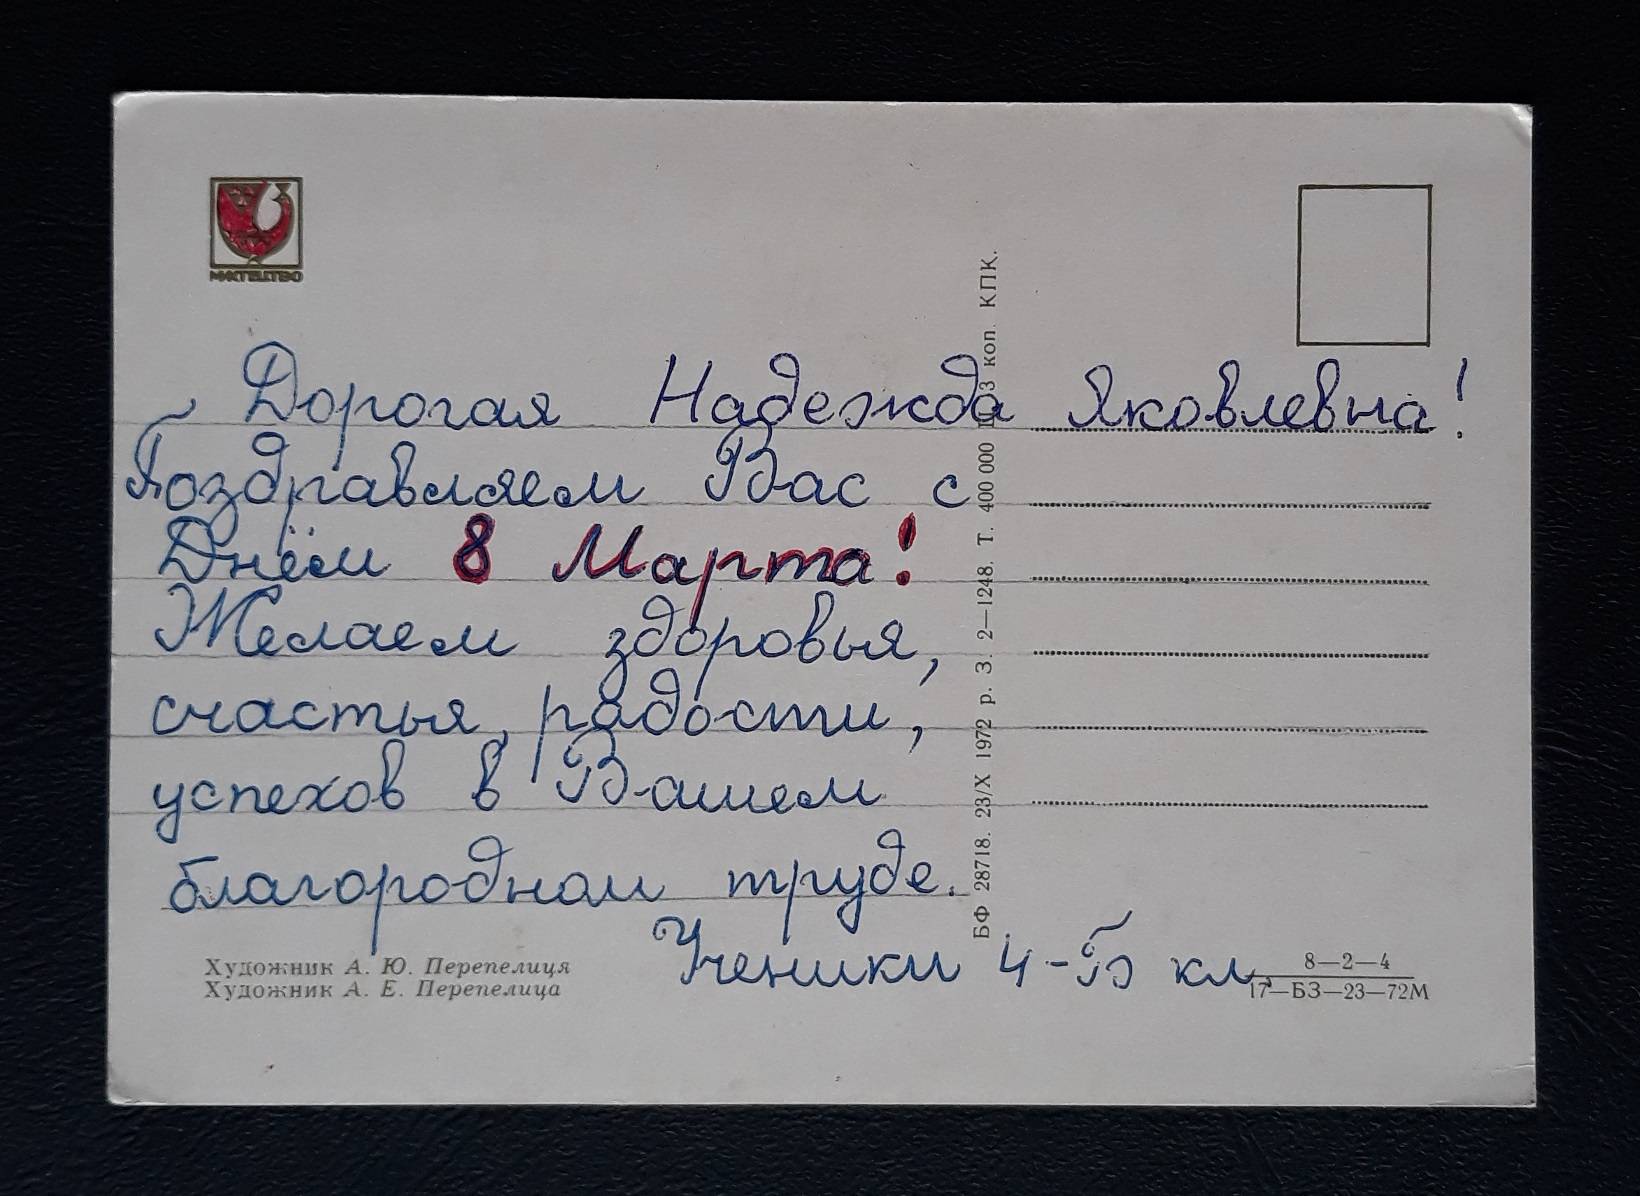 МИСТЕЦТВО
Дорогая Надежда Яковлевна!
Поздравляем Вас с
Днём 8 Марта!
Желаем здоровья,
счастья, радости,
успехов в Вашем
благородном труде.
Ученики 4-Б кл.
Художник А. Ю. Перепелиця
Художник А. Е. Перепелица
БФ 28718. 23/X 1972 р. З. 2—1248. Т. 400 000 3 коп. КПК.
8—2—4
17—БЗ—23—72М